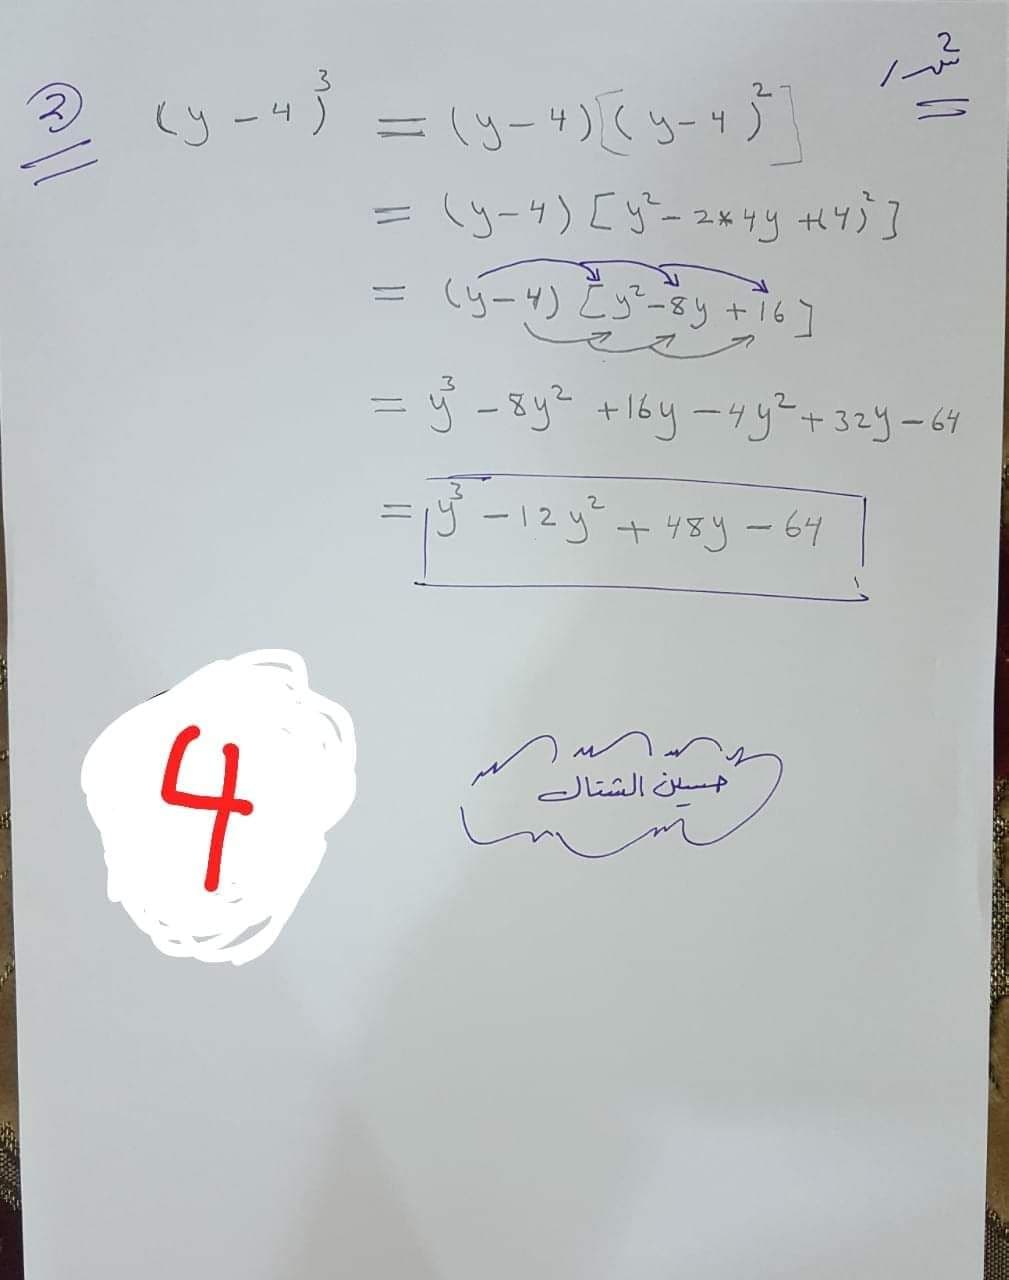 ② (y - 4)³ = (y - 4)[(y - 4)²]
= (y - 4) [y² - 2*4y + (4)²]
= (y - 4) [y² - 8y + 16]
= y³ - 8y² + 16y - 4y² + 32y - 64
= y³ - 12y² + 48y - 64
4
حسين الشتال